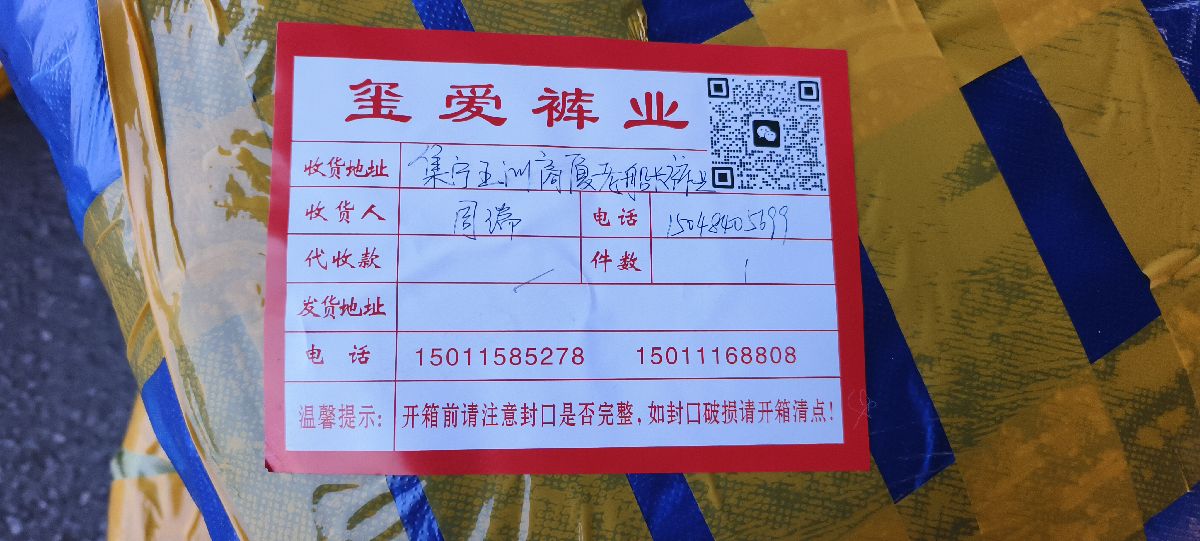 玺爱裤业
收货地址 集宁五洲商厦老船长裤业
收货人 周瑞 电话 15048405699
代收款 件数 1
发货地址
电话 15011585278 15011168808
温馨提示: 开箱前请注意封口是否完整,如封口破损请开箱清点!